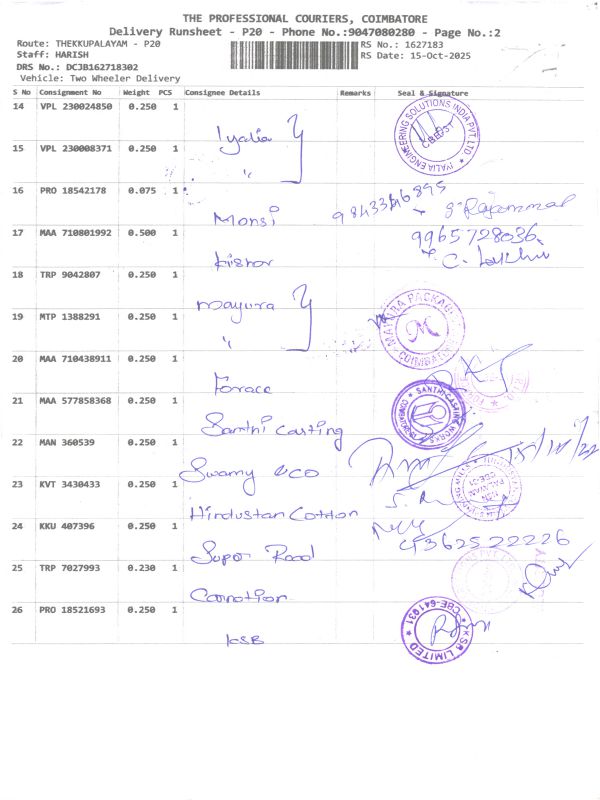 THE PROFESSIONAL COURIERS, COIMBATORE
Delivery Runsheet - P20 - Phone No.:9047080280 - Page No.:2
Route: THEKKUPALAYAM - P20
Staff: HARISH
DRS No.: DCJB162718302
Vehicle: Two Wheeler Delivery
RS No.: 1627183
RS Date: 15-Oct-2025
S No Consignment No Weight PCS Consignee Details Remarks Seal & Signature
14 VPL 230024850 0.250 1 Iyalia
IYALIA ENGINEERING SOLUTIONS INDIA PVT. LTD
15 VPL 230008371 0.250 1 "
16 PRO 18542178 0.075 1 Monsi
S. Rajammal
17 MAA 710801992 0.500 1 kishor
9965728036
18 TRP 9042807 0.250 1 mayura
19 MTP 1388291 0.250 1 "
MAYURA PACKAGING
COIMBATORE
M
20 MAA 710438911 0.250 1
21 MAA 577858368 0.250 1 Santhi casting
SANTHI CASTING WORKS
22 MAN 360539 0.250 1 Swamy &co
23 KVT 3430433 0.250 1 Hindustan Cotton
24 KKU 407396 0.250 1 Super Road
04362522226
25 TRP 7027993 0.230 1
26 PRO 18521693 0.250 1 KSB
KSB LIMITED
CBE-641031